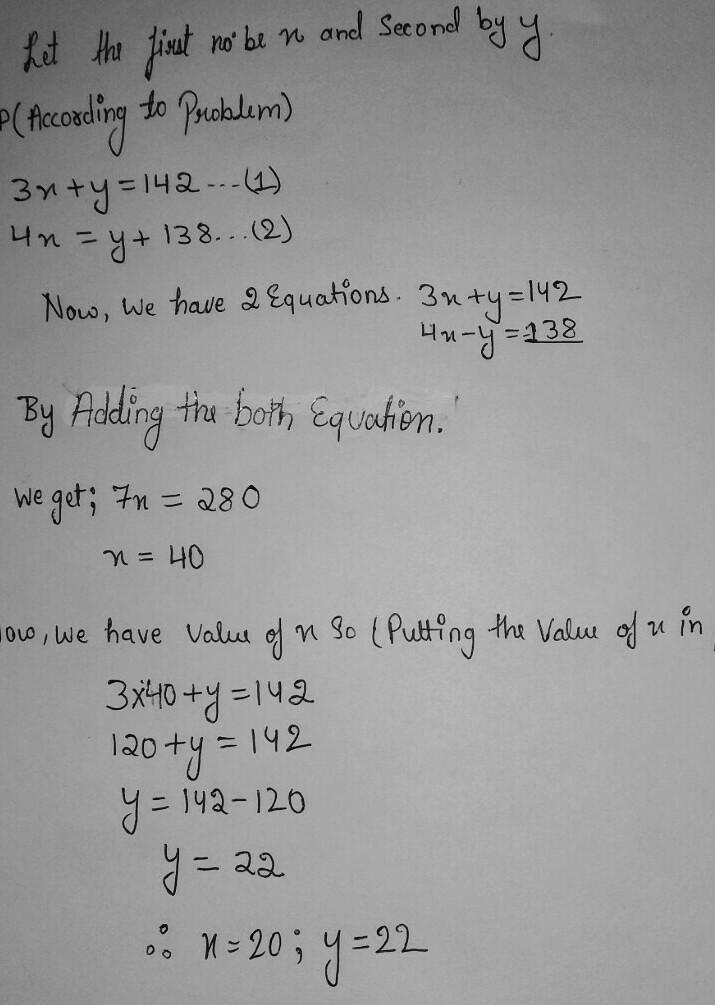 Let the first no. be x and Second by y.
P(According to Problem)
3x+y=142 ---(1)
4x = y+ 138...(2)
Now, We have 2 Equations. 3x+y=142
4x-y=138
By Adding the both Equation.
We get; 7x = 280
x = 40
ow, We have Value of x So (Putting the Value of x in
3x40+y=142
120+y=142
y=142-120
y=22
∴ x=20; y=22